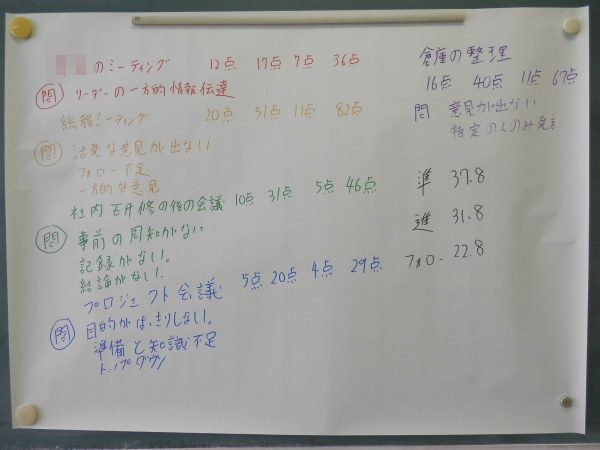 のミーティング 12点 17点 7点 36点
問 リーダーの一方的情報伝達
総務ミーティング 20点 51点 11点 82点
問 活発な意見が出ない
フォロー不足
一方的な意見
社内研修の後の会議 10点 31点 5点 46点
問 事前の周知がない
記録がない。
結論がない。
プロジェクト会議 5点 20点 4点 29点
問 目的がはっきりしない。
準備と知識不足
トップダウン
倉庫の整理
16点 40点 11点 67点
問 意見が出ない
特定の人のみ発言
準 37.8
進 31.8
フォロー 22.8